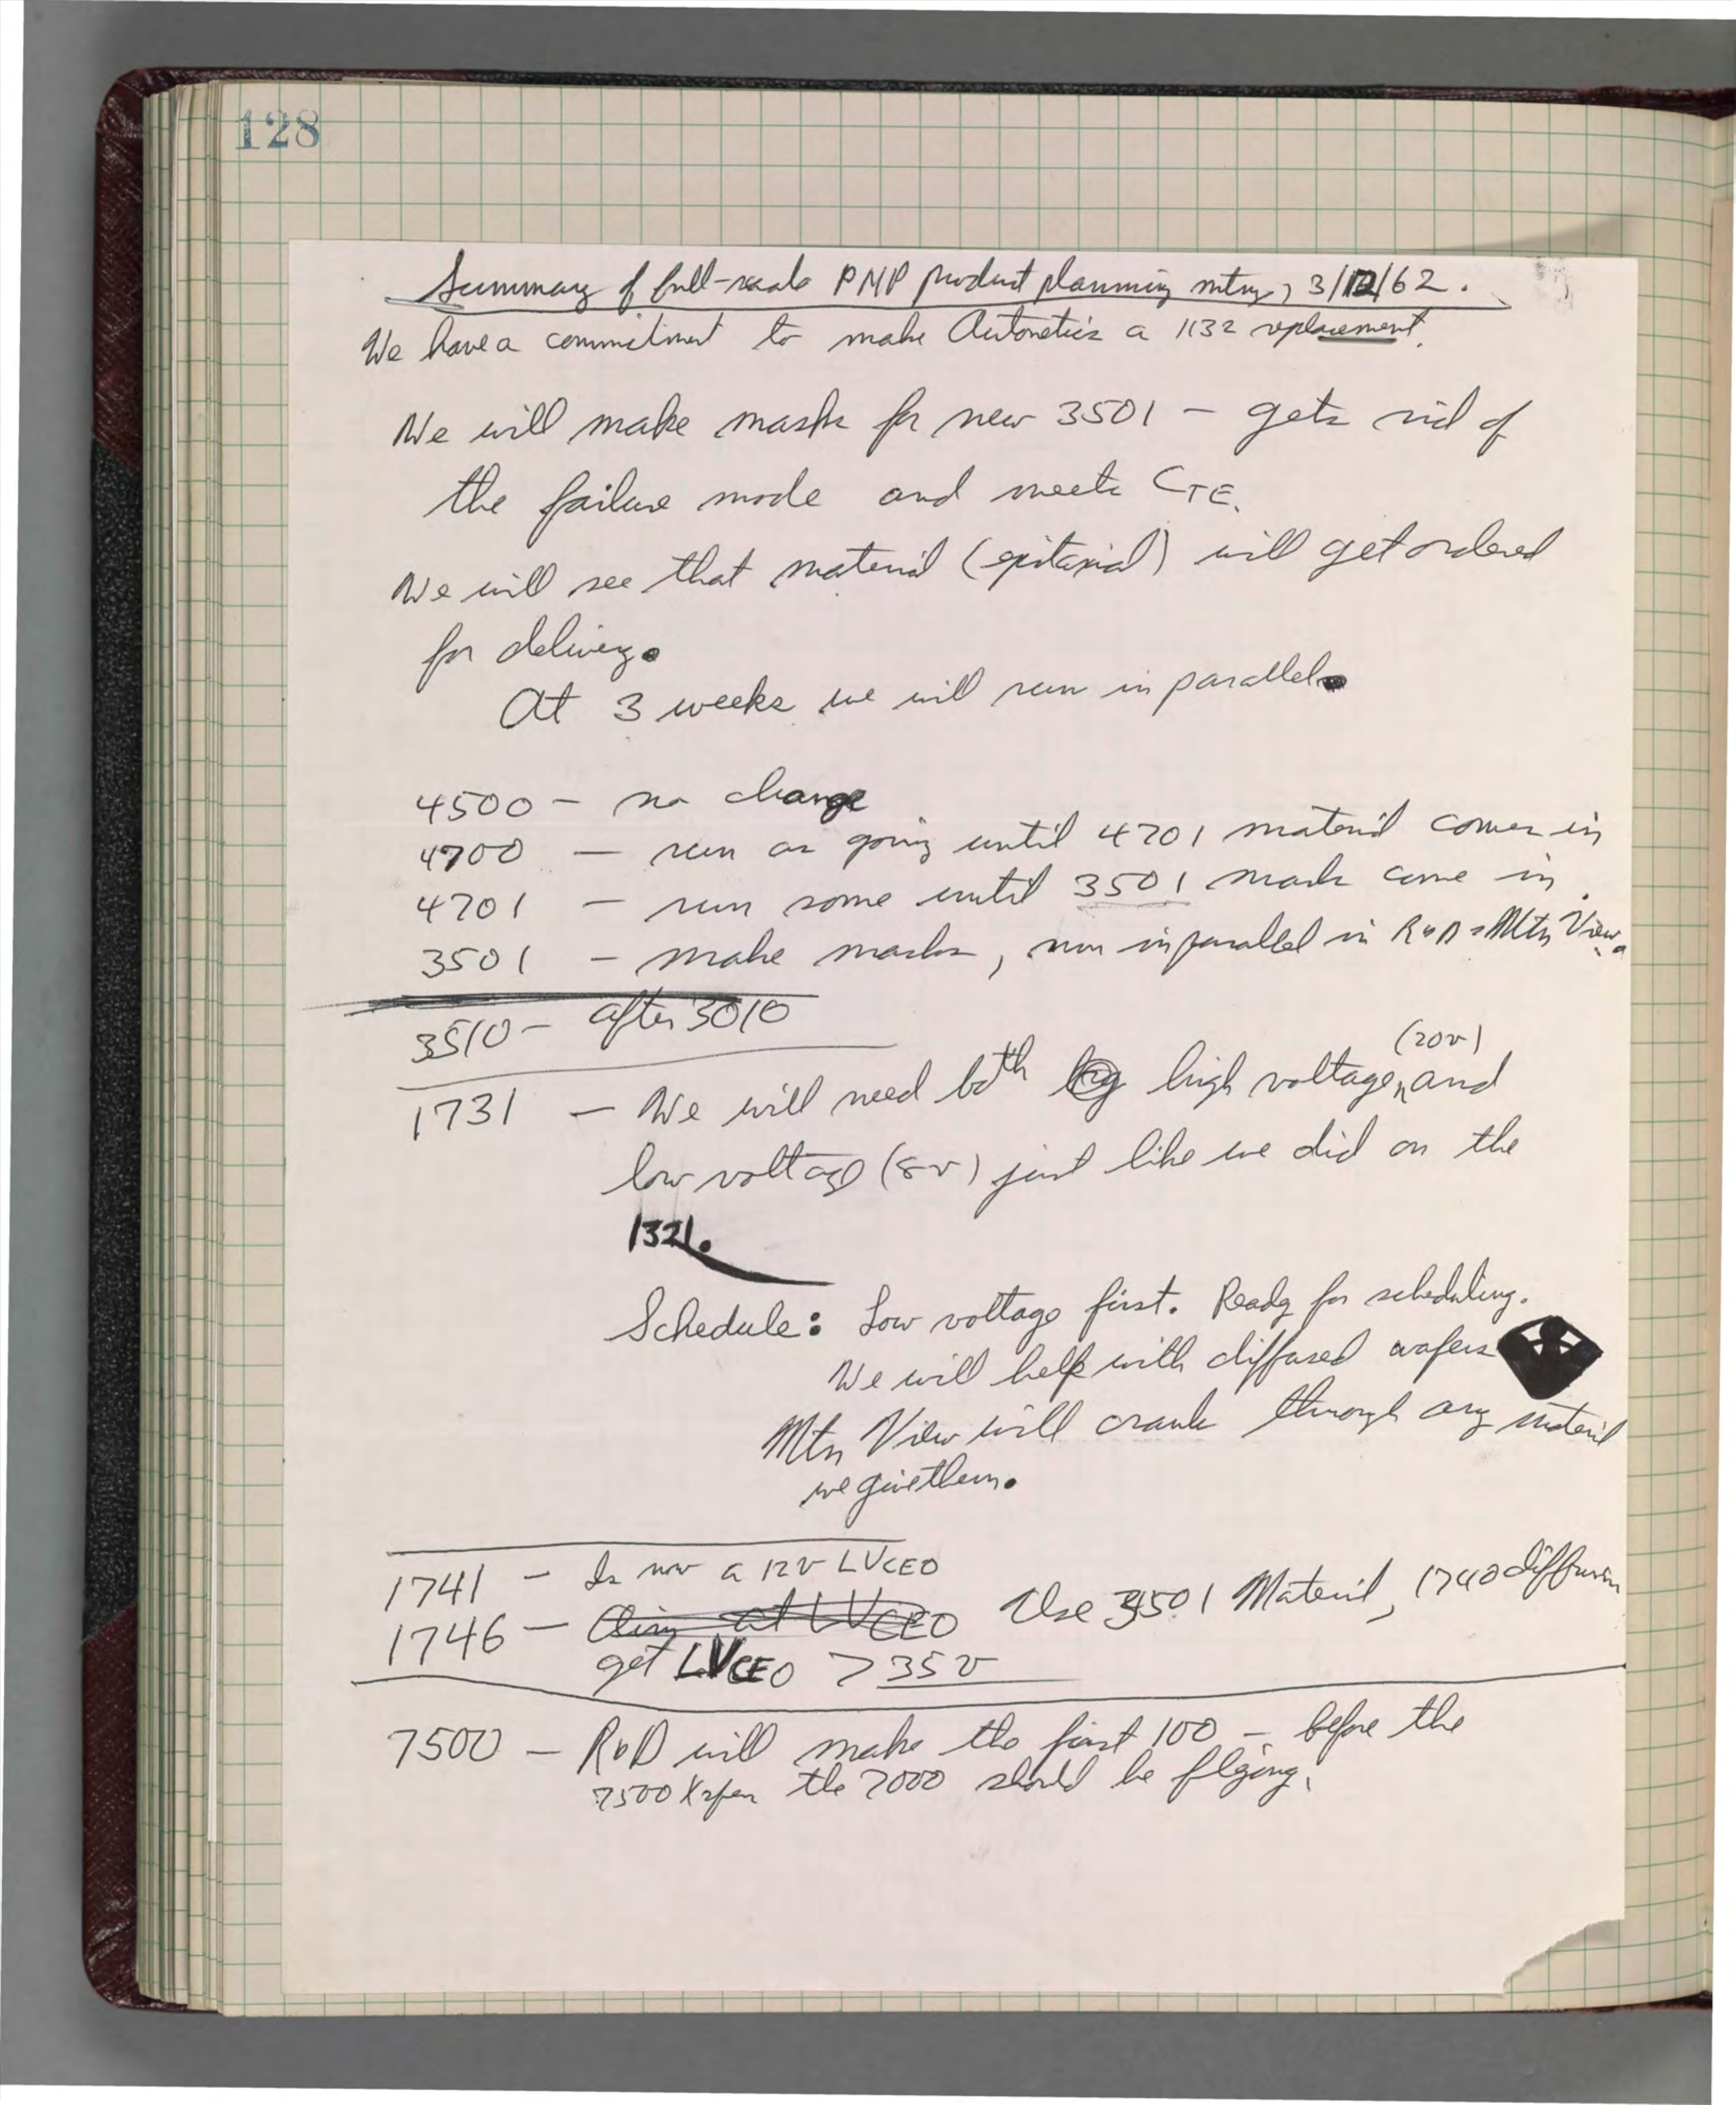 128
Summary of full-scale PNP product planning mtng, 3/12/62.
We have a commitment to make Autonetics a 1132 replacement.
We will make masks for new 3501 - gets rid of
the failure mode and meets CTE.
We will see that material (epitaxial) will get ordered
for delivery.
At 3 weeks we will run in parallel.
4500 - no change
4700 - run as going until 4701 material comes in
4701 - run some until 3501 masks come in.
3501 - make masks, run in parallel in R&D & Mtn View.
3510 - after 3010
(20v)
1731 - We will need both high voltage, and
low voltage (8v) just like we did on the
1321.
Schedule: Low voltage first. Ready for scheduling.
We will help with diffused wafers
Mtn View will crank through any material
we give them.
1741 - Is now a 12v LVCEO
1746 - Aim at LVCEO Use 3501 Material, 1740 diffusion
get LVCEO > 35v
7500 - R&D will make the first 100 - before the
7500 Xsfer the 7000 should be flying.